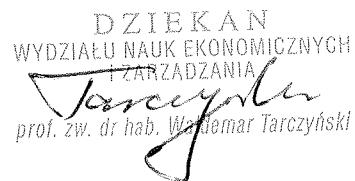 DZIEKAN
WYDZIAŁU NAUK EKONOMICZNYCH
I ZARZĄDZANIA
Tarczyński
prof. zw. dr hab. Waldemar Tarczyński